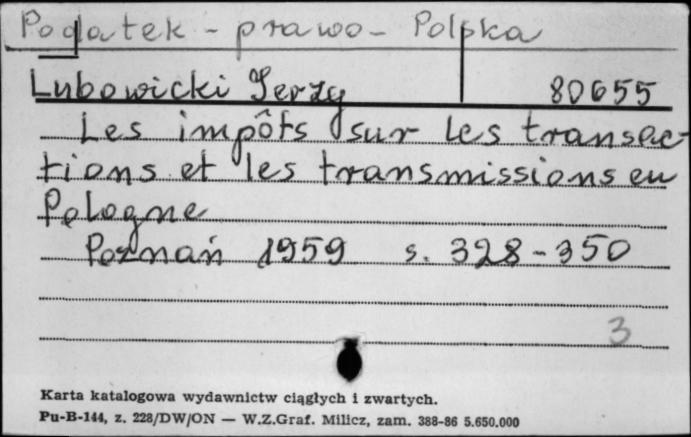 Podatek - prawo - Polska
Lubowicki Jerzy 80655
Les impôts sur les transac-
tions et les transmissions en
Pologne
Poznań 1959 s. 328-350
3
Karta katalogowa wydawnictw ciągłych i zwartych.
Pu-B-144, z. 228/DW/ON — W.Z.Graf. Milicz, zam. 388-86 5.650.000